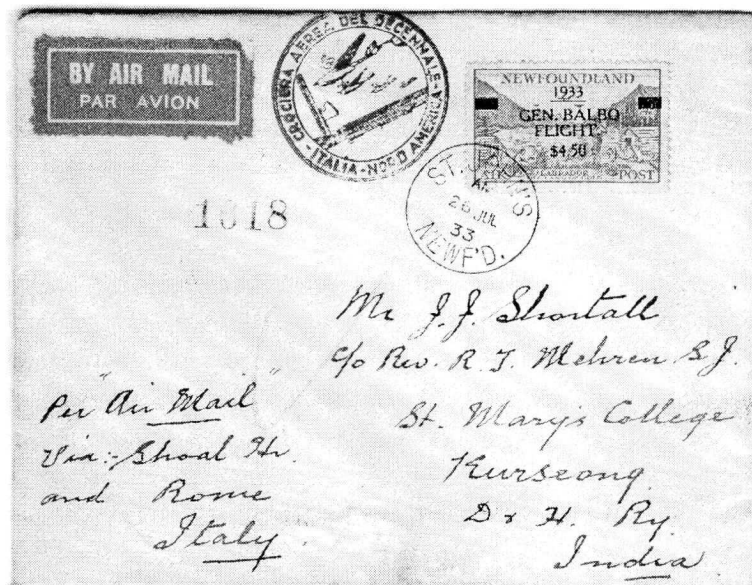 BY AIR MAIL
PAR AVION
CROCIERA AEREA DEL DECENNALE
ITALIA - NORD AMERICA
NEWFOUNDLAND
1933
GEN. BALBO
FLIGHT
$4.50
AIR LABRADOR POST
1018
ST. JOHN'S
26 JUL
33
NEWF'D.
Mr J.J. Shortall
c/o Rev. R. T. Mehren S.J.
St. Mary's College
Kurseong
Dr H. Ry
India
Per "Air Mail"
Via:- Shoal Hr.
and Rome
Italy